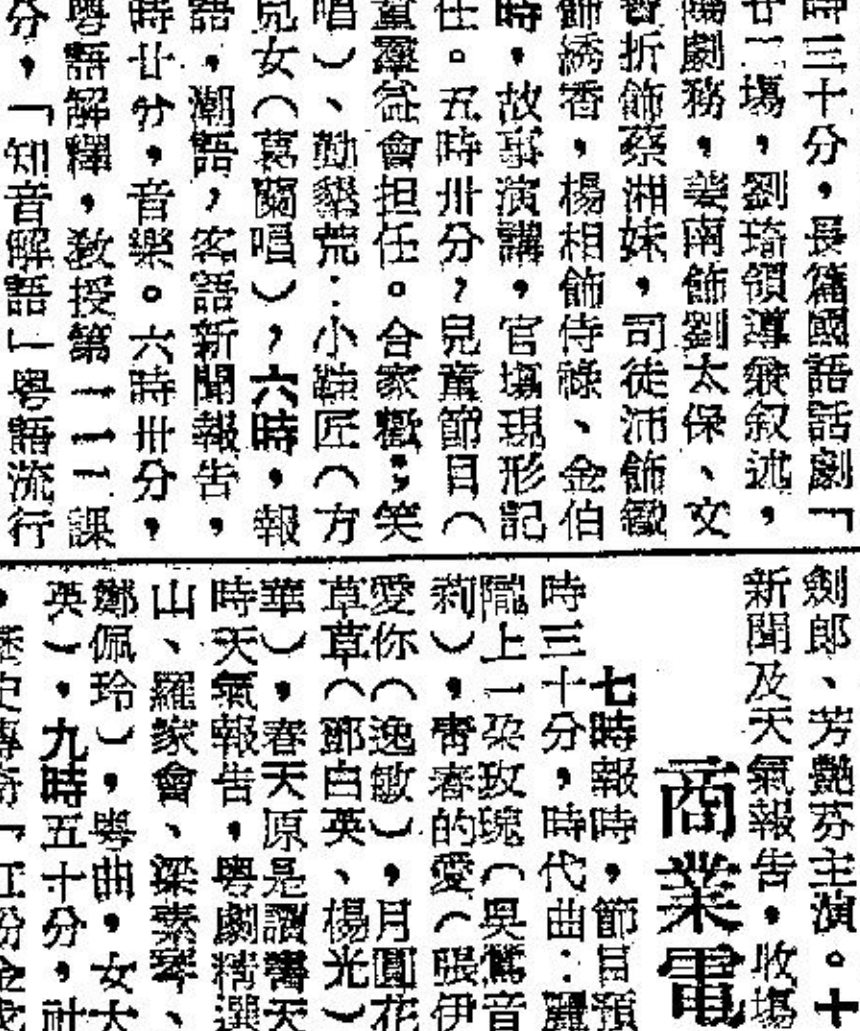 時三十分，長篇國語話劇「
廿二場，劉琦領導發叙述，
劇務，姜南飾劉太保、文
折飾蔡湘妹，司徒沛飾鐵
飾綉香，楊相飾侍祿、金伯
時，故事演講，官塲現形記
任。五時卅分，兒童節目（
童羣益會担任。合家歡；笑
唱）、勤墾荒：小鞋匠（方
兒女（葛蘭唱），六時，報
語，潮語，客語新聞報告，
時廿分，音樂。六時卅分，
粵語解釋，敎授第一一二課
分，「知音解語」粵語流行
劍郎、芳艷芬主演。十
新聞及天氣報告。收塲
商業電
七時報時，節目預
時三十分，時代曲：麗
隴上一朶玫瑰（吳鶯音
莉），靑春的愛（張伊
愛你（逸敏），月圓花
草草（鄧白英、楊光）
華），春天原是讀書天
時天氣報告，粵劇精選
山、羅家會、梁素琴、
鄭佩玲），粵曲，女大
英），九時五十分，社
歷史傳奇「紅粉金戈